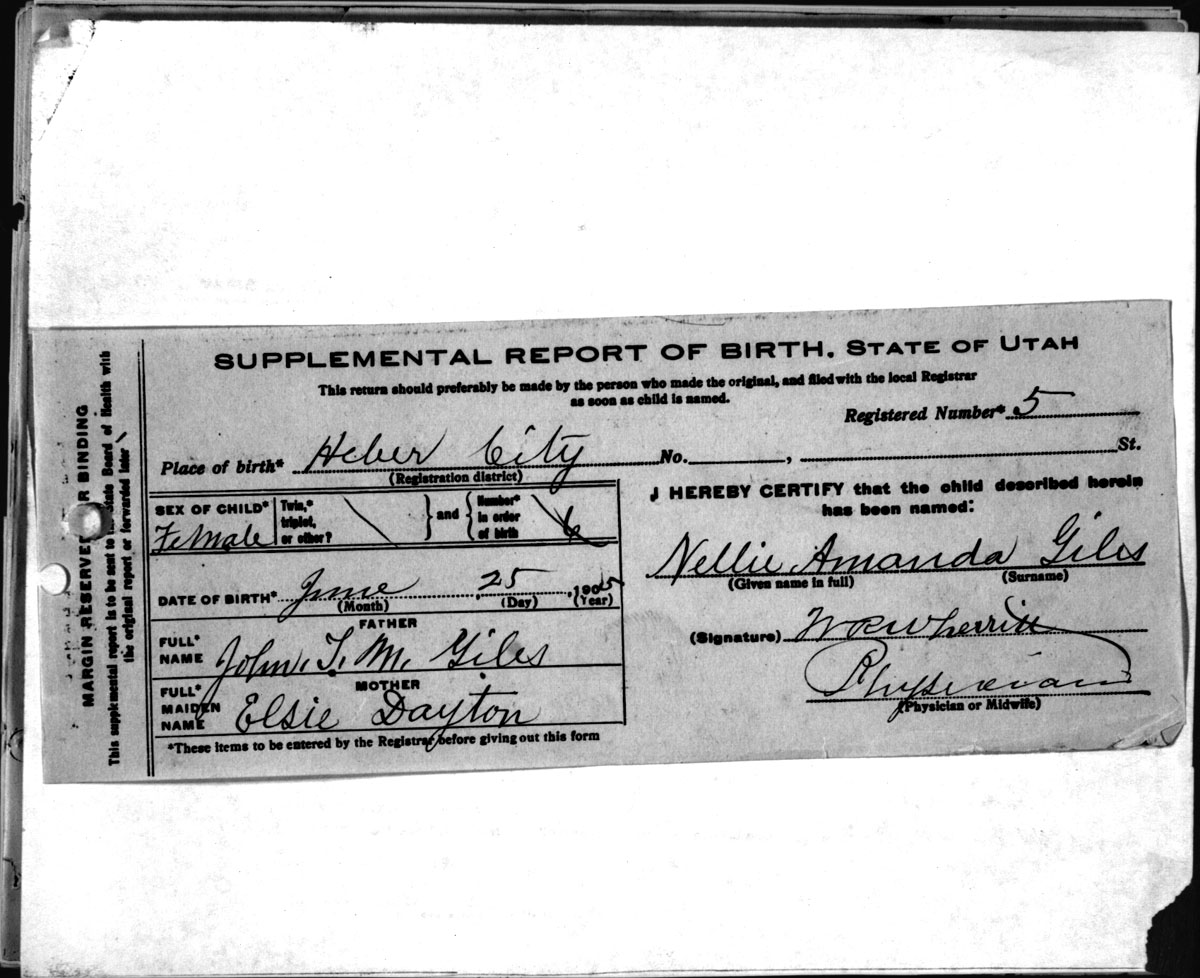 SUPPLEMENTAL REPORT OF BIRTH. STATE OF UTAH
This return should preferably be made by the person who made the original, and filed with the local Registrar
as soon as child is named.
Registered Number* 5
Place of birth* Heber City No. , St.
(Registration district)
SEX OF CHILD* Female
Twin,* triplet, or other? \ } and { Number* in order of birth
DATE OF BIRTH* June 25, 1905
(Month) (Day) (Year)
FATHER
FULL* NAME John. T. M. Giles
MOTHER
FULL* MAIDEN NAME Elsie Dayton
*These items to be entered by the Registrar before giving out this form
I HEREBY CERTIFY that the child described herein
has been named:
Nellie Amanda Giles
(Given name in full) (Surname)
(Signature) W R Wherritt
Physician
(Physician or Midwife)
MARGIN RESERVED FOR BINDING
This supplemental report is to be sent to the State Board of Health with
the original report or forwarded later